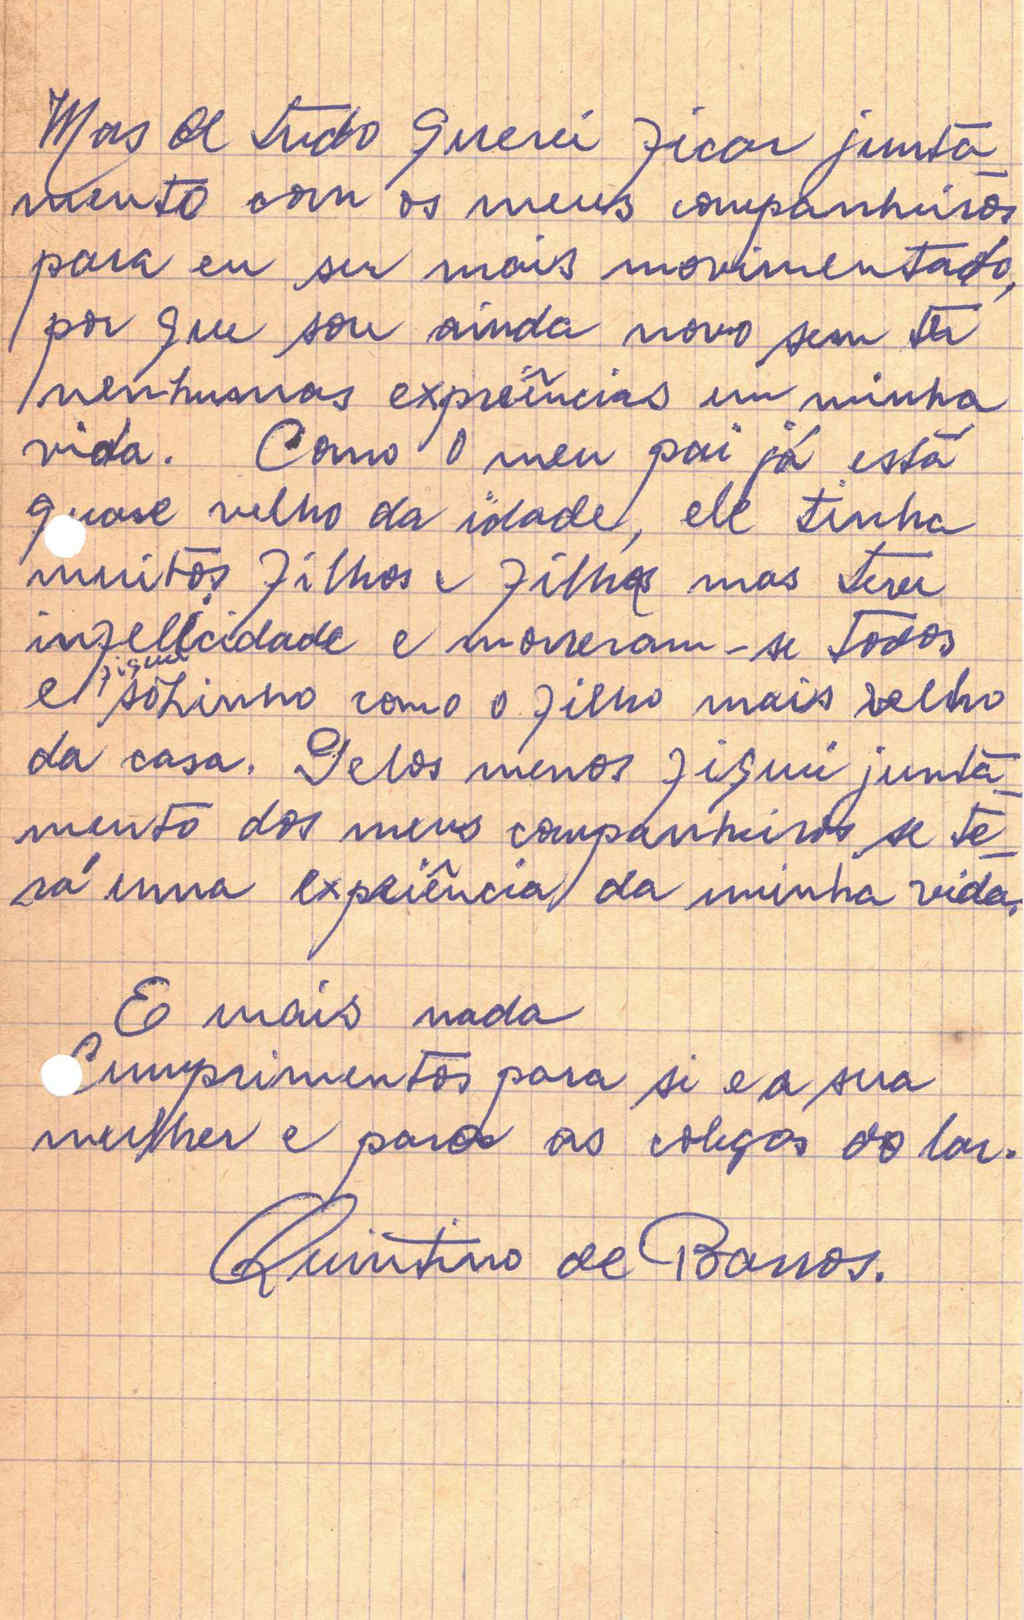 Mas de tudo querei ficar junta
mento com os meus companheiros
para eu ser mais movimentado,
por que sou ainda novo sem ter
nenhumas expreiências em minha
vida. Como o meu pai já está
quase velho da idade, ele tinha
muitos filhos e filhas mas teve
infelicidade e morreram-se todos
e fiquei sòzinho como o filho mais velho
da casa. Pelos menos fiquei junta
mento dos meus companheiros se te
rá uma expreiência da minha vida.
E mais nada
Cumprimentos para si e a sua
mulher e para os colegas do lar.
Quintino de Barros.